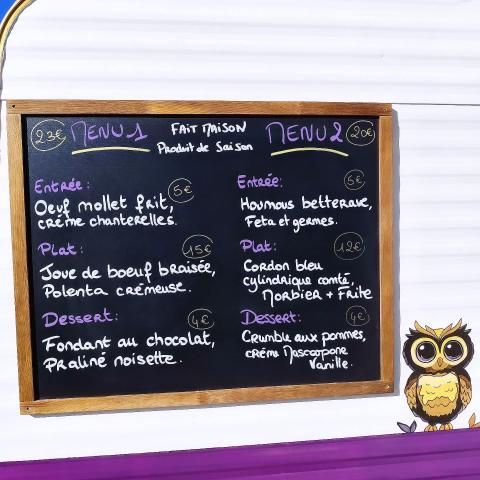 23€ MENU 1
FAIT MAISON
Produit de Saison
MENU 2 20€
Entrée: 5€
Oeuf mollet frit,
crème chanterelles.
Plat: 15€
Joue de boeuf braisée,
Polenta crémeuse.
Dessert: 4€
Fondant au chocolat,
Praliné noisette.
Entrée: 5€
Houmous betterave,
Feta et germes.
Plat: 12€
Cordon bleu
cylindrique comté,
Morbier + Frite
Dessert: 4€
Crumble aux pommes,
crème Mascarpone
Vanille.